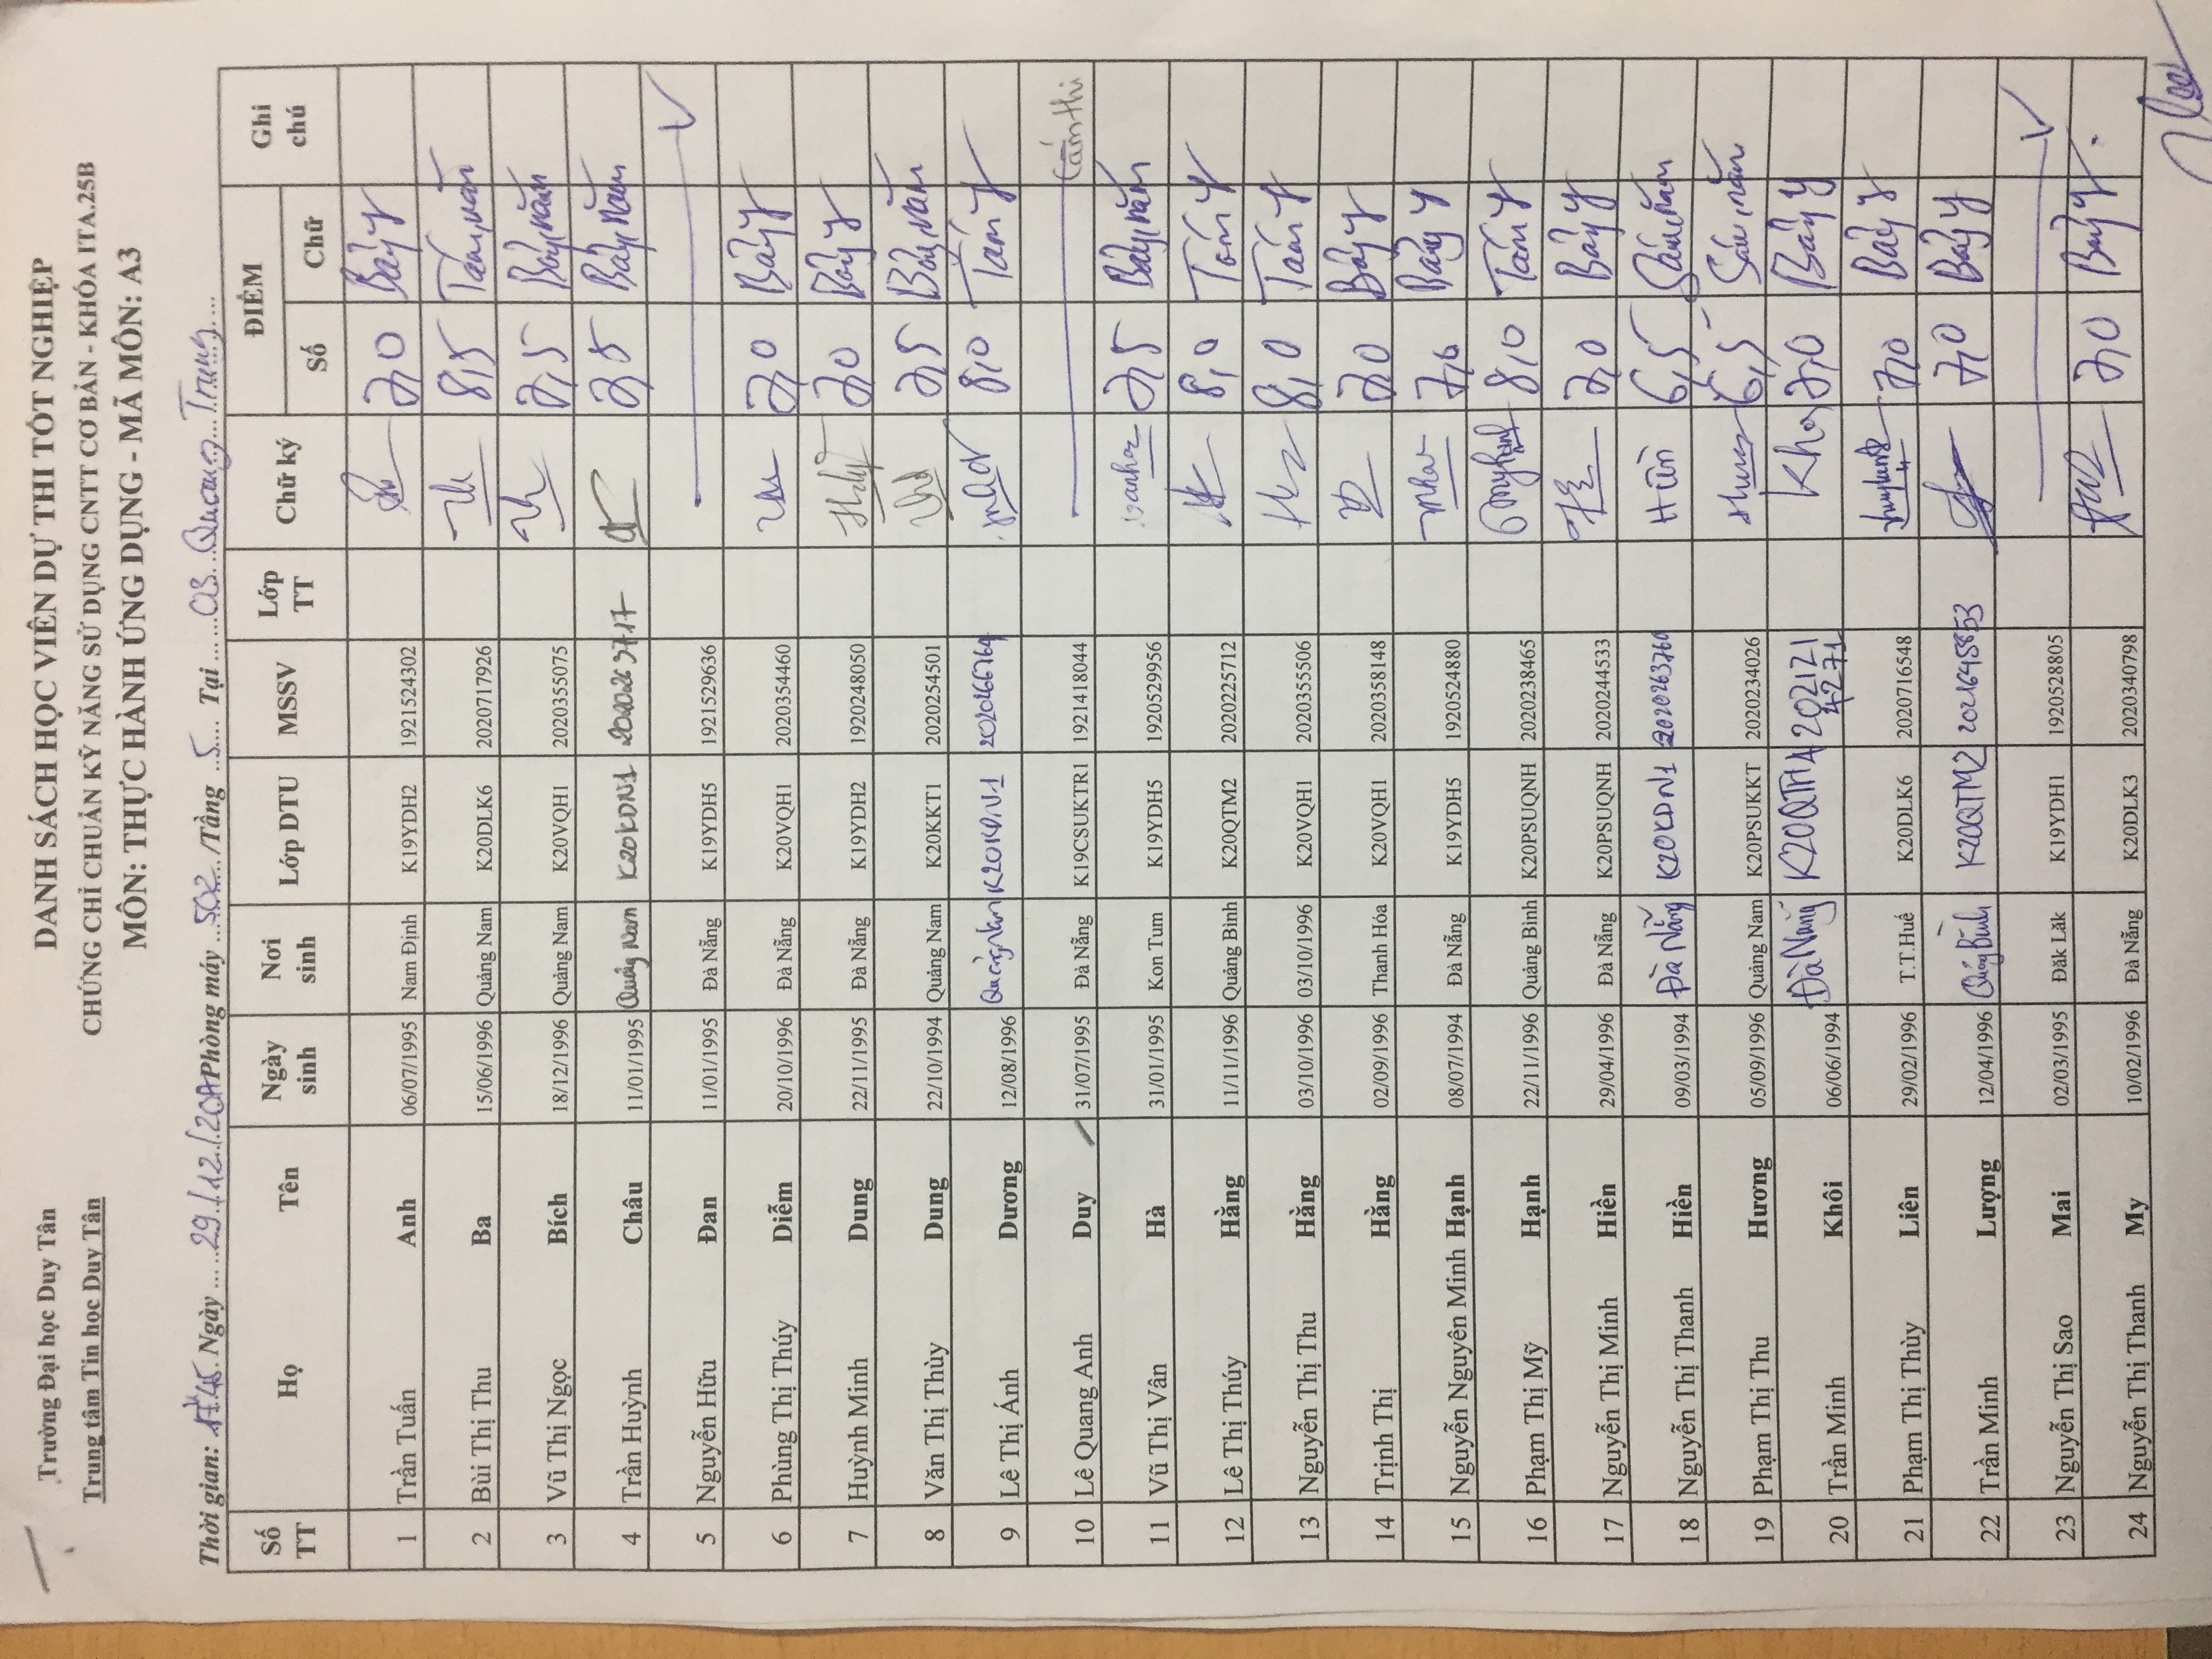 Trường Đại học Duy Tân
Trung tâm Tin học Duy Tân
DANH SÁCH HỌC VIÊN DỰ THI TỐT NGHIỆP
CHỨNG CHỈ CHUẨN KỸ NĂNG SỬ DỤNG CNTT CƠ BẢN - KHÓA ITA.25B
MÔN: THỰC HÀNH ỨNG DỤNG - MÃ MÔN: A3
Thời gian: 17h45 Ngày 29/12/2017 Phòng máy 502 /Tầng 5 Tại 03 Quang Trung
Số TT Họ Tên Ngày sinh Nơi sinh Lớp DTU MSSV Lớp TT Chữ ký ĐIỂM Số Chữ Ghi chú
1 Trần Tuấn Anh 06/07/1995 Nam Định K19YDH2 1921524302 7,0 Bảy y
2 Bùi Thị Thu Ba 15/06/1996 Quảng Nam K20DLK6 2020717926 8,5 Tám, năm
3 Vũ Thị Ngọc Bích 18/12/1996 Quảng Nam K20VQH1 2020355075 7,5 Bảy, năm
4 Trần Huỳnh Châu 11/01/1995 Quảng Nam K20KDN1 2020263717 7,5 Bảy, năm
5 Nguyễn Hữu Đan 11/01/1995 Đà Nẵng K19YDH5 1921529636 V
6 Phùng Thị Thúy Diễm 20/10/1996 Đà Nẵng K20VQH1 2020354460 7,0 Bảy y
7 Huỳnh Minh Dung 22/11/1995 Đà Nẵng K19YDH2 1920248050 7,0 Bảy y
8 Văn Thị Thùy Dung 22/10/1994 Quảng Nam K20KKT1 2020254501 7,5 Bảy, năm
9 Lê Thị Ánh Dương 12/08/1996 Quảng Nam 2020266764 8,0 Tám y
10 Lê Quang Anh Duy 31/07/1995 Đà Nẵng K19CSUKTR1 1921418044 Cấm thi
11 Vũ Thị Vân Hà 31/01/1995 Kon Tum K19YDH5 1920529956 7,5 Bảy, năm
12 Lê Thị Thúy Hằng 11/11/1996 Quảng Bình K20QTM2 2020225712 8,0 Tám y
13 Nguyễn Thị Thu Hằng 03/10/1996 03/10/1996 K20VQH1 2020355506 8,0 Tám y
14 Trịnh Thị Hằng 02/09/1996 Thanh Hóa K20VQH1 2020358148 7,0 Bảy y
15 Nguyễn Nguyên Minh Hạnh 08/07/1994 Đà Nẵng K19YDH5 1920524880 7,0 Bảy y
16 Phạm Thị Mỹ Hạnh 22/11/1996 Quảng Bình K20PSUQNH 2020238465 8,0 Tám y
17 Nguyễn Thị Minh Hiền 29/04/1996 Đà Nẵng K20PSUQNH 2020244533 7,0 Bảy y
18 Nguyễn Thị Thanh Hiền 09/03/1994 Đà Nẵng K20KDN1 2020263760 Hiền 6,5 Sáu, năm
19 Phạm Thị Thu Hương 05/09/1996 Quảng Nam K20PSUKKT 2020234026 6,5 Sáu, năm
20 Trần Minh Khôi 06/06/1994 Đà Nẵng K20QTH4 2021214271 Khôi 7,0 Bảy y
21 Phạm Thị Thùy Liên 29/02/1996 T.T.Huế K20DLK6 2020716548 7,0 Bảy y
22 Trần Minh Lượng 12/04/1996 Quảng Bình K20QTM2 2021645853 7,0 Bảy y
23 Nguyễn Thị Sao Mai 02/03/1995 Đăk Lăk K19YDH1 1920528805 V
24 Nguyễn Thị Thanh My 10/02/1996 Đà Nẵng K20DLK3 2020340798 7,0 Bảy y